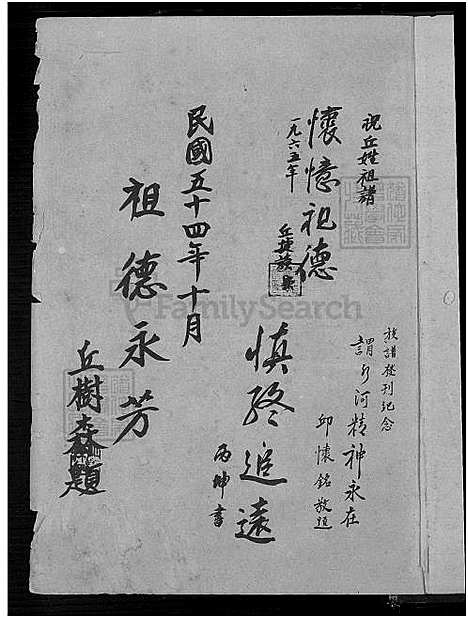 祝丘姓祖譜
懷憶祖德
一九六五年
丘
族譜發刊紀念
河精神永在
邱懷銘敬題
慎終追遠
丙坤書
民國五十四年十月
祖德永芳
丘樹森題
FamilySearch